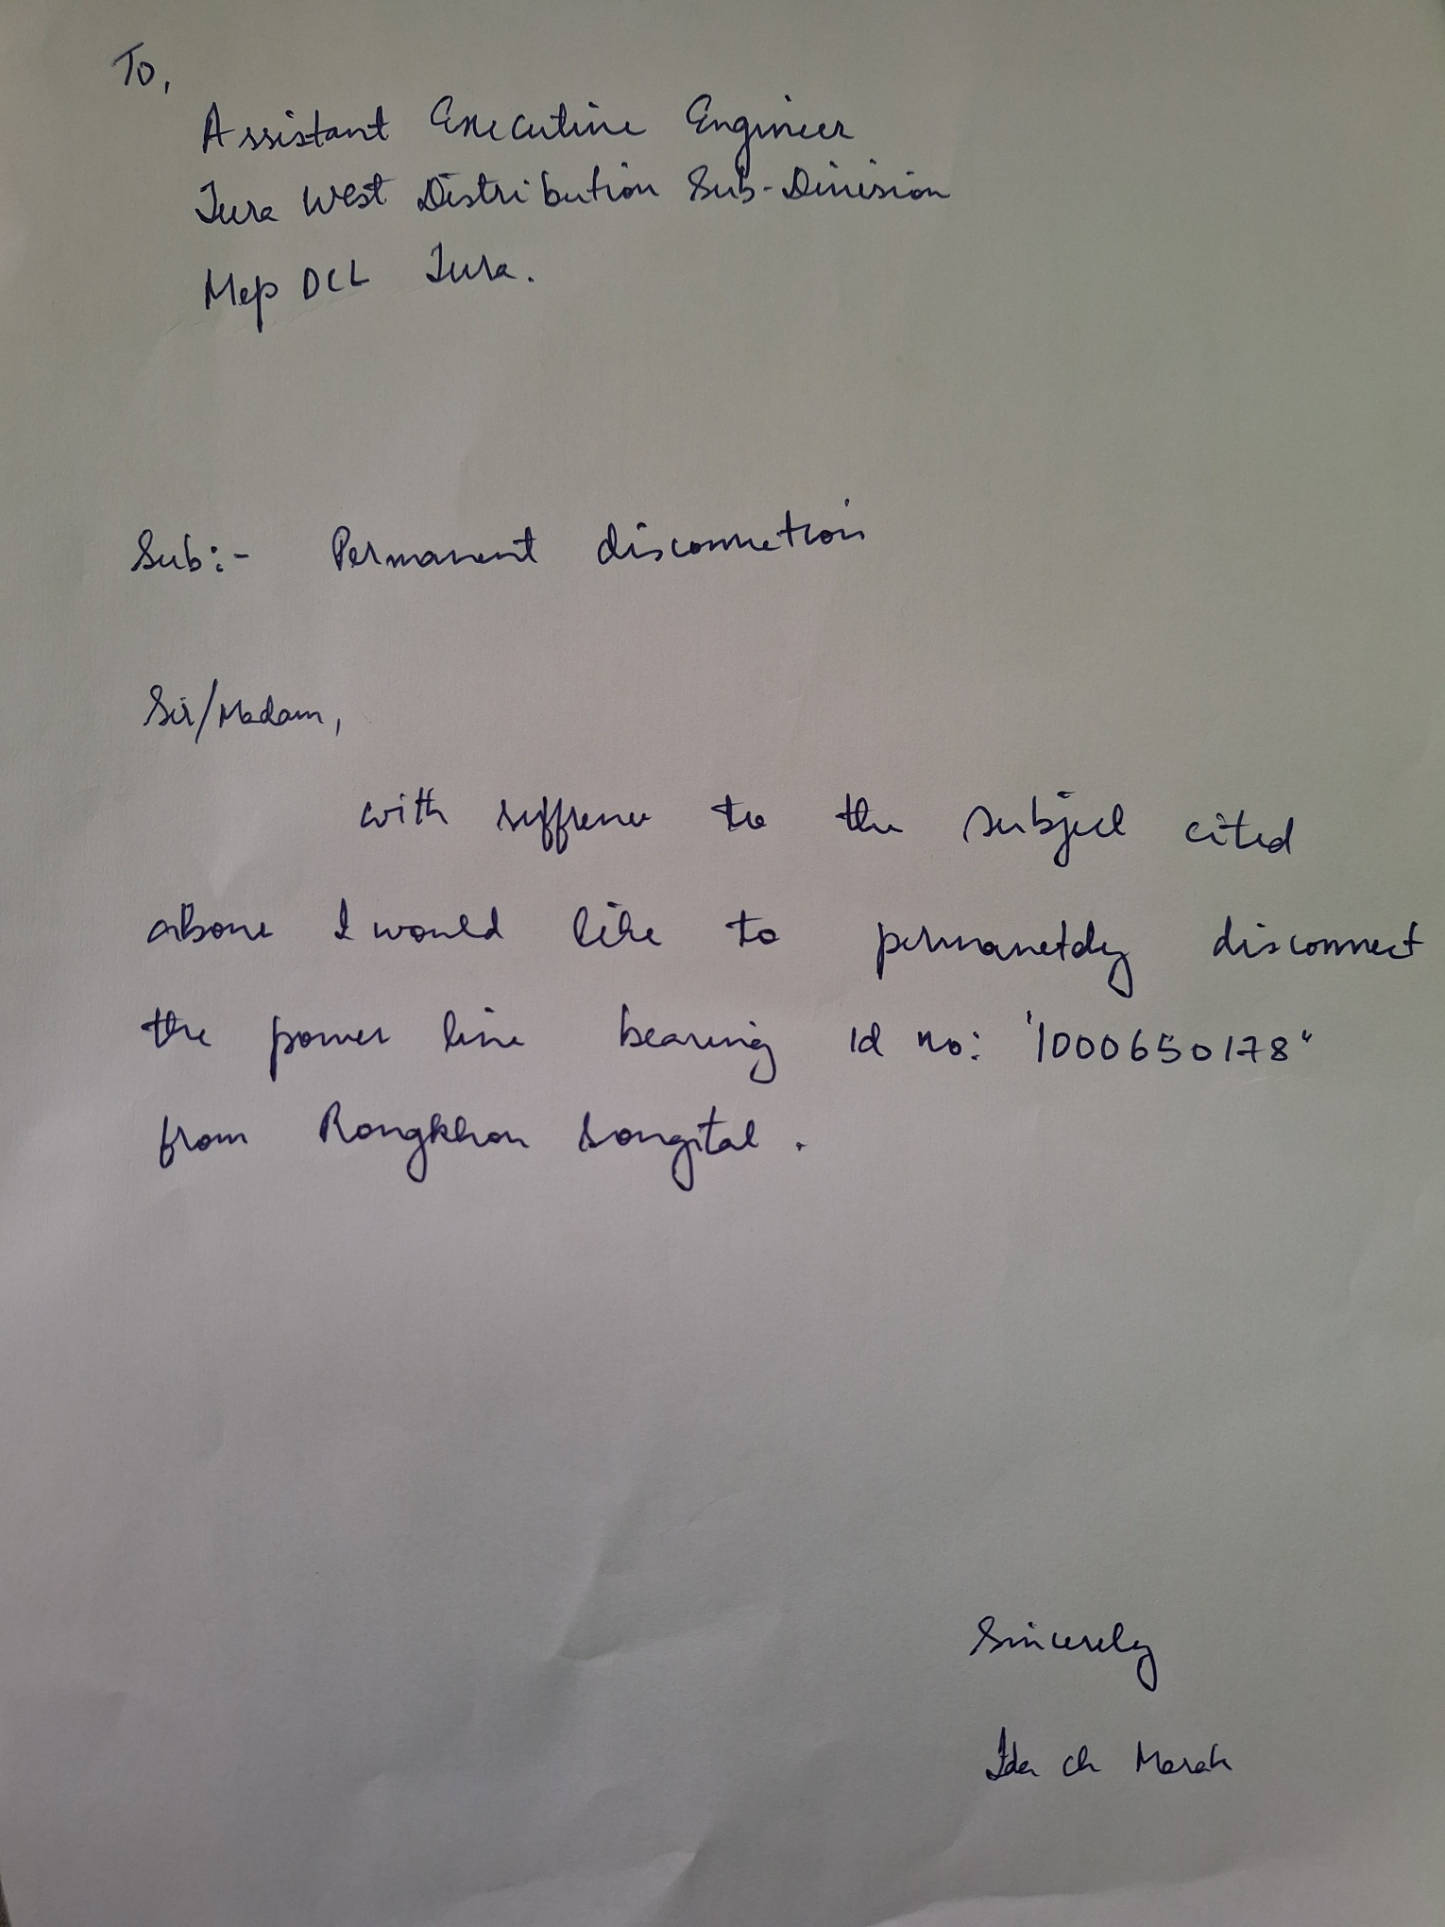 To,
Assistant Executive Engineer
Tura West Distribution Sub-Division
Mep DCL Tura.
Sub:- Permanent disconnetion
Sir/Madam,
with reffrence to the subject cited
above I would like to permanetdy disconnect
the power line bearing Id no: '1000650178"
from Rongkhon songital.
Sincerely
Ida Ch Marak